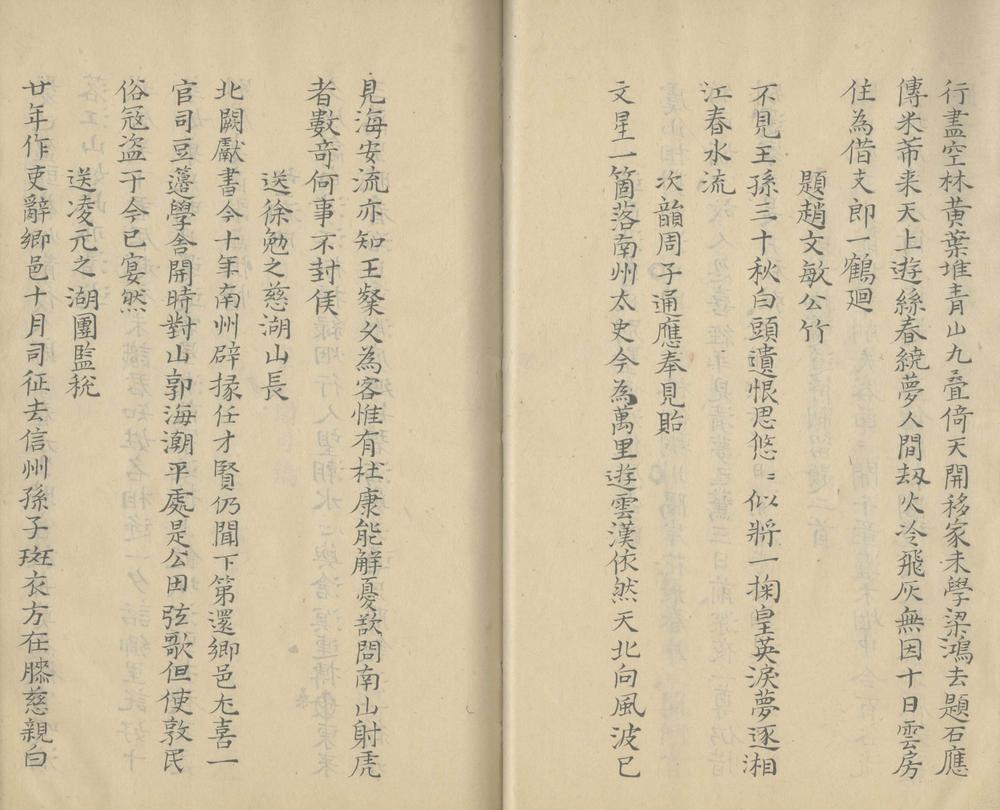 行盡空林黃葉堆青山九叠倚天開移家未學梁鴻去題石應
傳米芾来天上遊絲春繞夢人間刼火冷飛灰無因十日雲房
住為借支郎一鶴廻
題趙文敏公竹
不見王孫三十秋白頭遺恨思悠〻似將一掬皇英淚夢逐湘
江春水流
次韻周子通應奉見貽
文星一箇落南州太史今為萬里遊雲漢依然天北向風波已
見海安流亦知王粲乆為客惟有杜康能解憂欲問南山射虎
者數竒何事不封侯
送徐勉之慈湖山長
北闕獻書今十年南州辟掾任才賢仍聞下第還鄉邑尢喜一
官司豆籩學舍開時對山郭海潮平處是公田弦歌但使敦民
俗冦盗于今已宴然
送凌元之湖團監稅
廿年作吏辭鄉邑十月司征去信州孫子斑衣方在膝慈親白